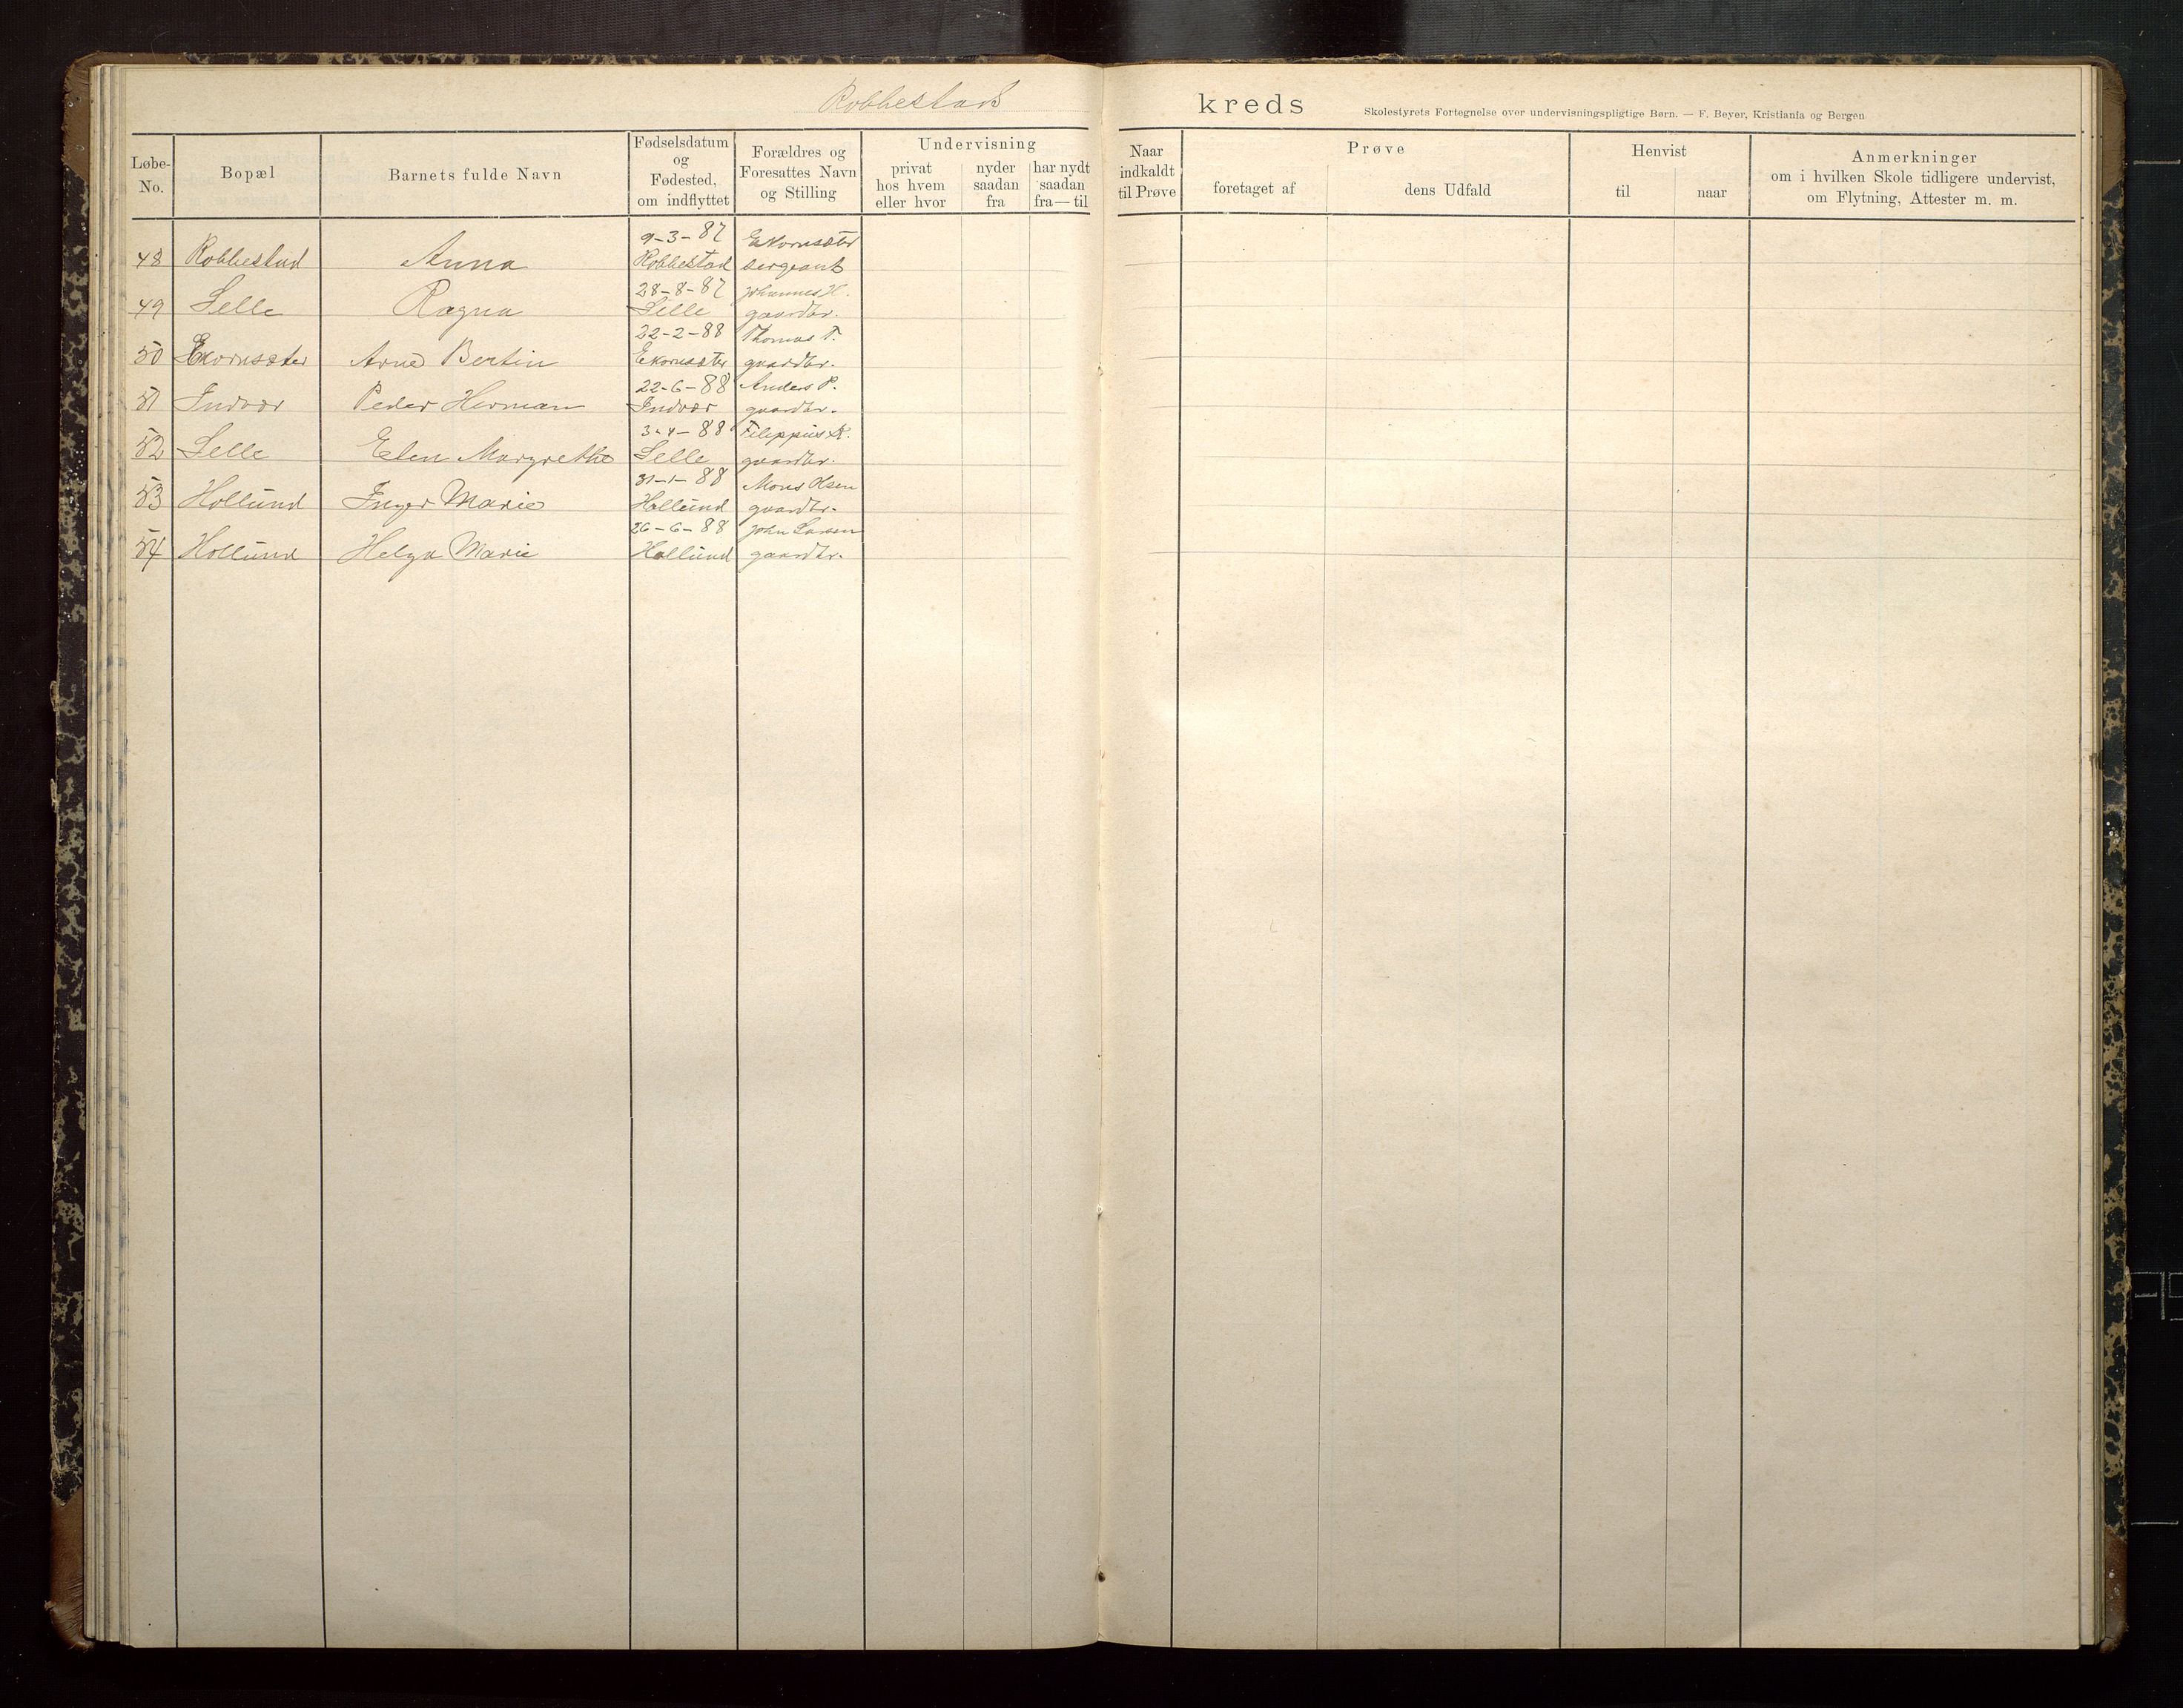 Robbestad kreds Skolestyrets Fortegnelse over undervisningspligtige Børn. — F. Beyer, Kristiania og Bergen
Løbe-No. Bopæl Barnets fulde Navn Fødselsdatum og Fødested, om indflyttet Forældres og Foresattes Navn og Stilling Undervisning privat hos hvem eller hvor nyder saadan fra har nydt saadan fra—til Naar indkaldt til Prøve Prøve foretaget af dens Udfald Henvist til naar Anmerkninger om i hvilken Skole tidligere undervist, om Flytning, Attester m. m.
9-3-87 Ekornsæter
48 Robbestad Anna Robbestad sergeant
28-8-87 Johannes H.
49 Selle Ragna Selle gaardbr.
22-2-88 Thomas T.
50 Ekornsæter Arne Bertin Ekornsæter gaardbr.
22-6-88 Anders P.
51 Indvær Peder Herman Indvær gaardbr.
3-4-88 Filippus K.
52 Selle Elen Margrethe Selle gaardbr.
31-1-88 Mons Olsen
53 Hollund Inger Marie Hollund gaardbr.
26-6-88 John Larsen
54 Hollund Helga Marie Hollund gaardbr.